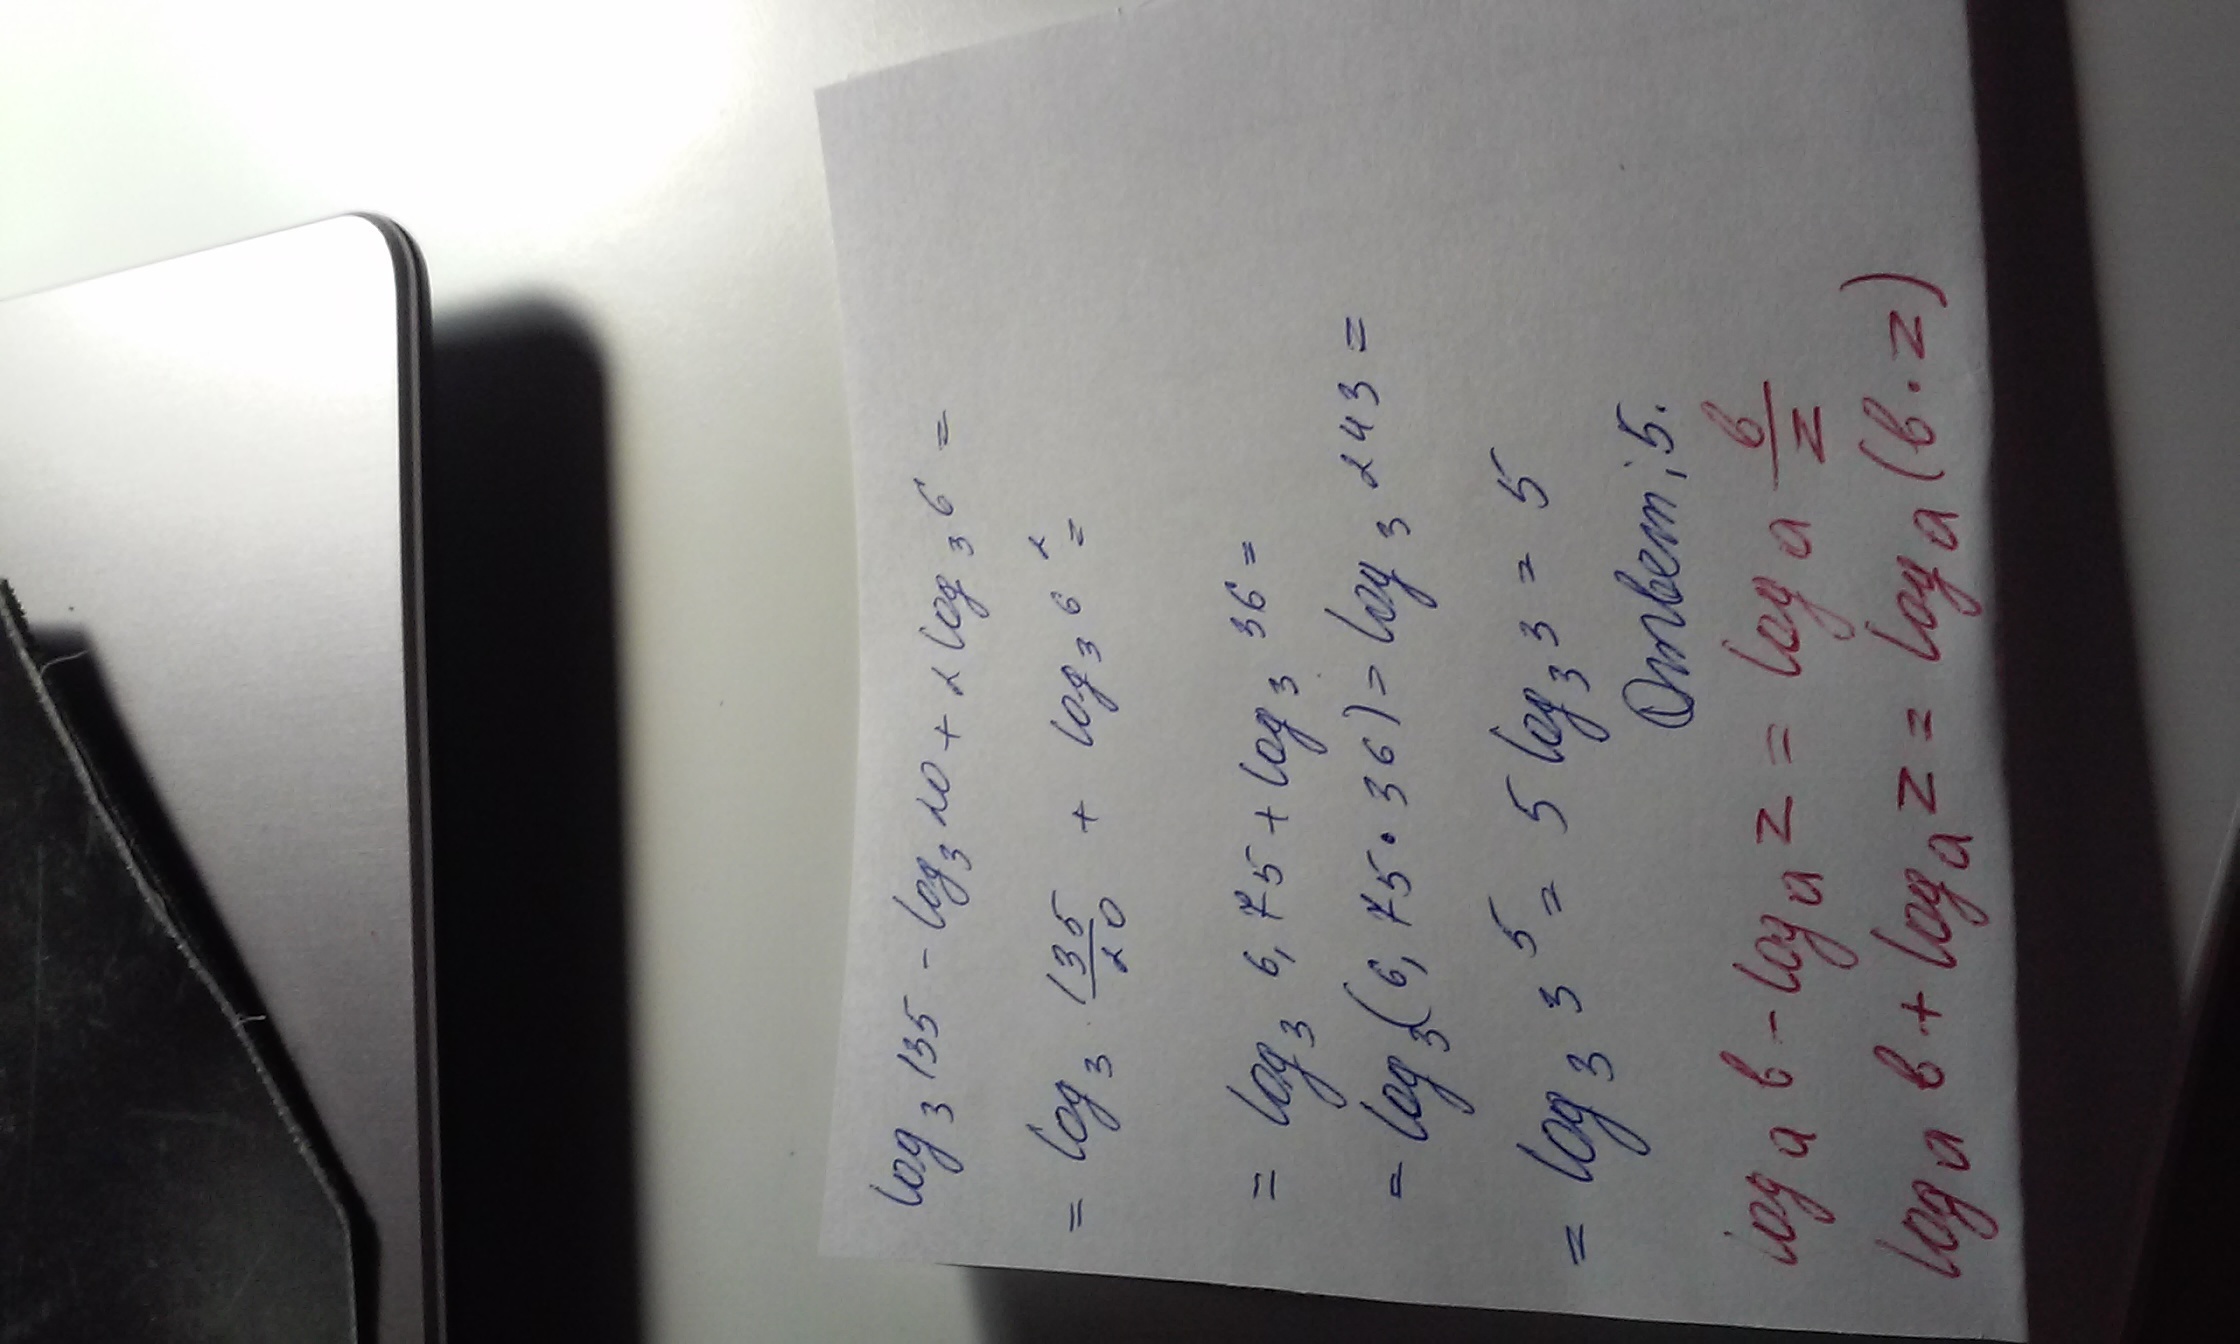 log₃135 - log₃20 + 2log₃6 =
= log₃ 135/20 + log₃6² =
= log₃ 6,75 + log₃ 36 =
= log₃(6,75 · 36) = log₃ 243 =
= log₃ 3⁵ = 5 log₃3 = 5
Ответ: 5.
logₐ b - logₐ z = logₐ b/z
logₐ b + logₐ z = logₐ (b · z)